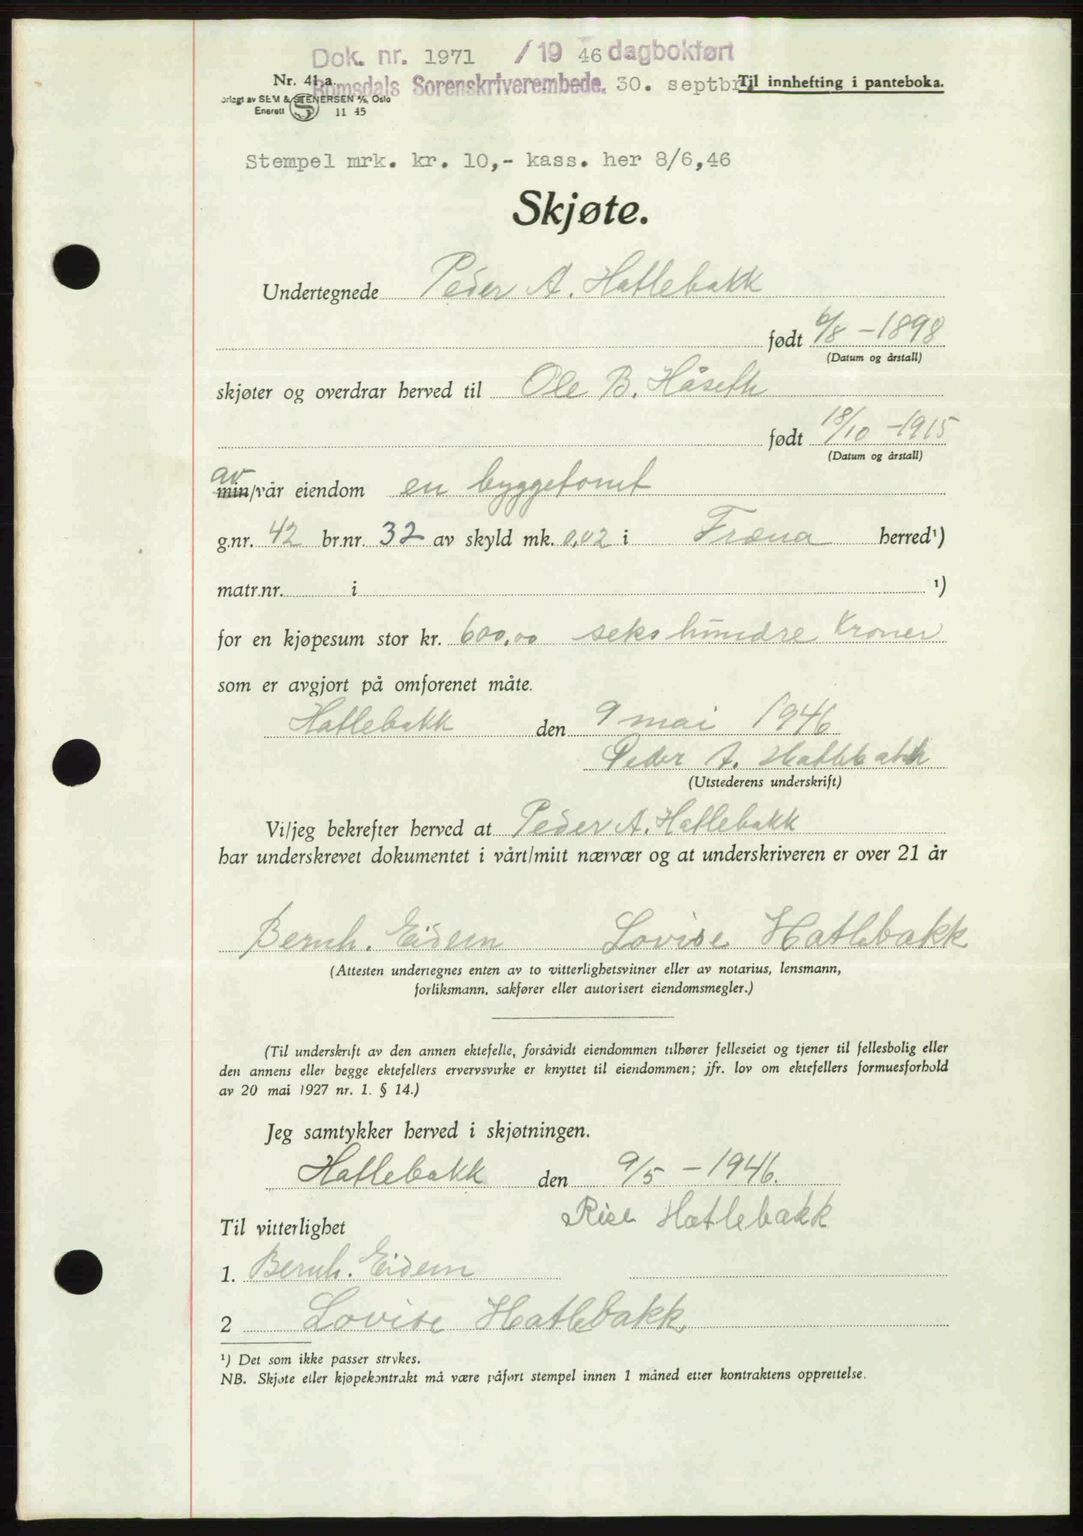 Dok. nr. 1971 / 19 46 dagbokført
Nr. 41 a
Romsdals Sorenskriverembede. 30. septbr.
Til innhefting i panteboka.
orlagt av SEM & STENERSEN A/S, Oslo
Enerett S 11 45
Stempel mrk. kr. 10,- kass. her 8/6,46
Skjøte.
Undertegnede Peder A. Hatlebakk
født 6/8 - 1898
(Datum og årstall)
skjøter og overdrar herved til Ole B. Håseth
født 18/10 - 1915
(Datum og årstall)
av
min/vår eiendom en byggetomt
g.nr. 42 br.nr. 32 av skyld mk. 0,02 i Fræna herred¹)
matr.nr. i ¹)
for en kjøpesum stor kr. 600,00 seks hundre Kroner
som er avgjort på omforenet måte.
Hatlebakk den 9 mai 1946
Peder A. Hatlebakk
(Utstederens underskrift)
Vi/jeg bekrefter herved at Peder A. Hatlebakk
har underskrevet dokumentet i vårt/mitt nærvær og at underskriveren er over 21 år
Bernh. Eidem Lovise Hatlebakk
(Attesten undertegnes enten av to vitterlighetsvitner eller av notarius, lensmann,
forliksmann, sakfører eller autorisert eiendomsmegler.)
(Til underskrift av den annen ektefelle, forsåvidt eiendommen tilhører felleseiet og tjener til fellesbolig eller
den annens eller begge ektefellers ervervsvirke er knyttet til eiendommen; jfr. lov om ektefellers formuesforhold
av 20 mai 1927 nr. 1. § 14.)
Jeg samtykker herved i skjøtningen.
Hatlebakk den 9/5 - 1946.
Hatlebakk
Til vitterlighet
1. Bernh. Eidem
2 Lovise Hatlebakk
¹) Det som ikke passer strykes.
NB. Skjøte eller kjøpekontrakt må være påført stempel innen 1 måned etter kontraktens opprettelse.